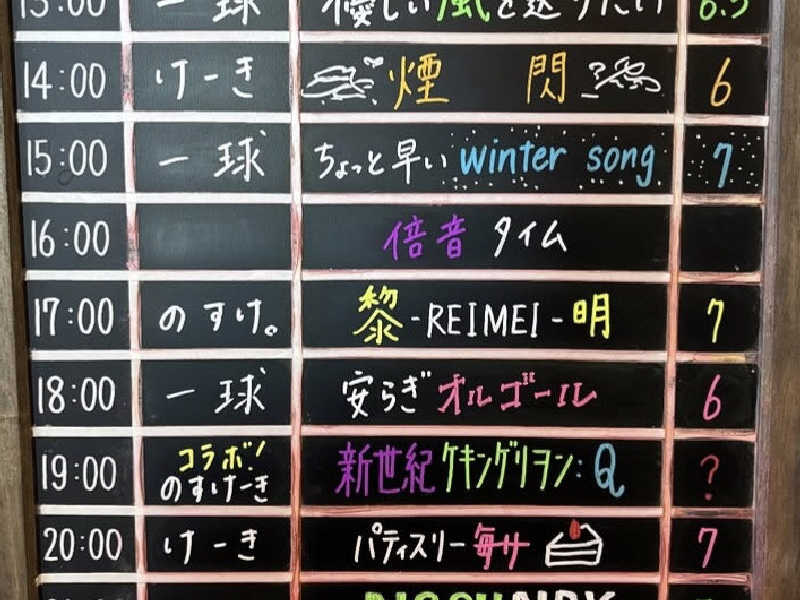 13:00 一球 優しい風を送りたい 6.5
14:00 けーき 煙 閃 6
15:00 一球 ちょっと早い winter song 7
16:00 倍音 タイム
17:00 のすけ。 黎-REIMEI-明 7
18:00 一球 安らぎオルゴール 6
19:00 コラボ! のすけーき 新世紀ケキングリヲン:Q ?
20:00 けーき パティスリー毎サ 7